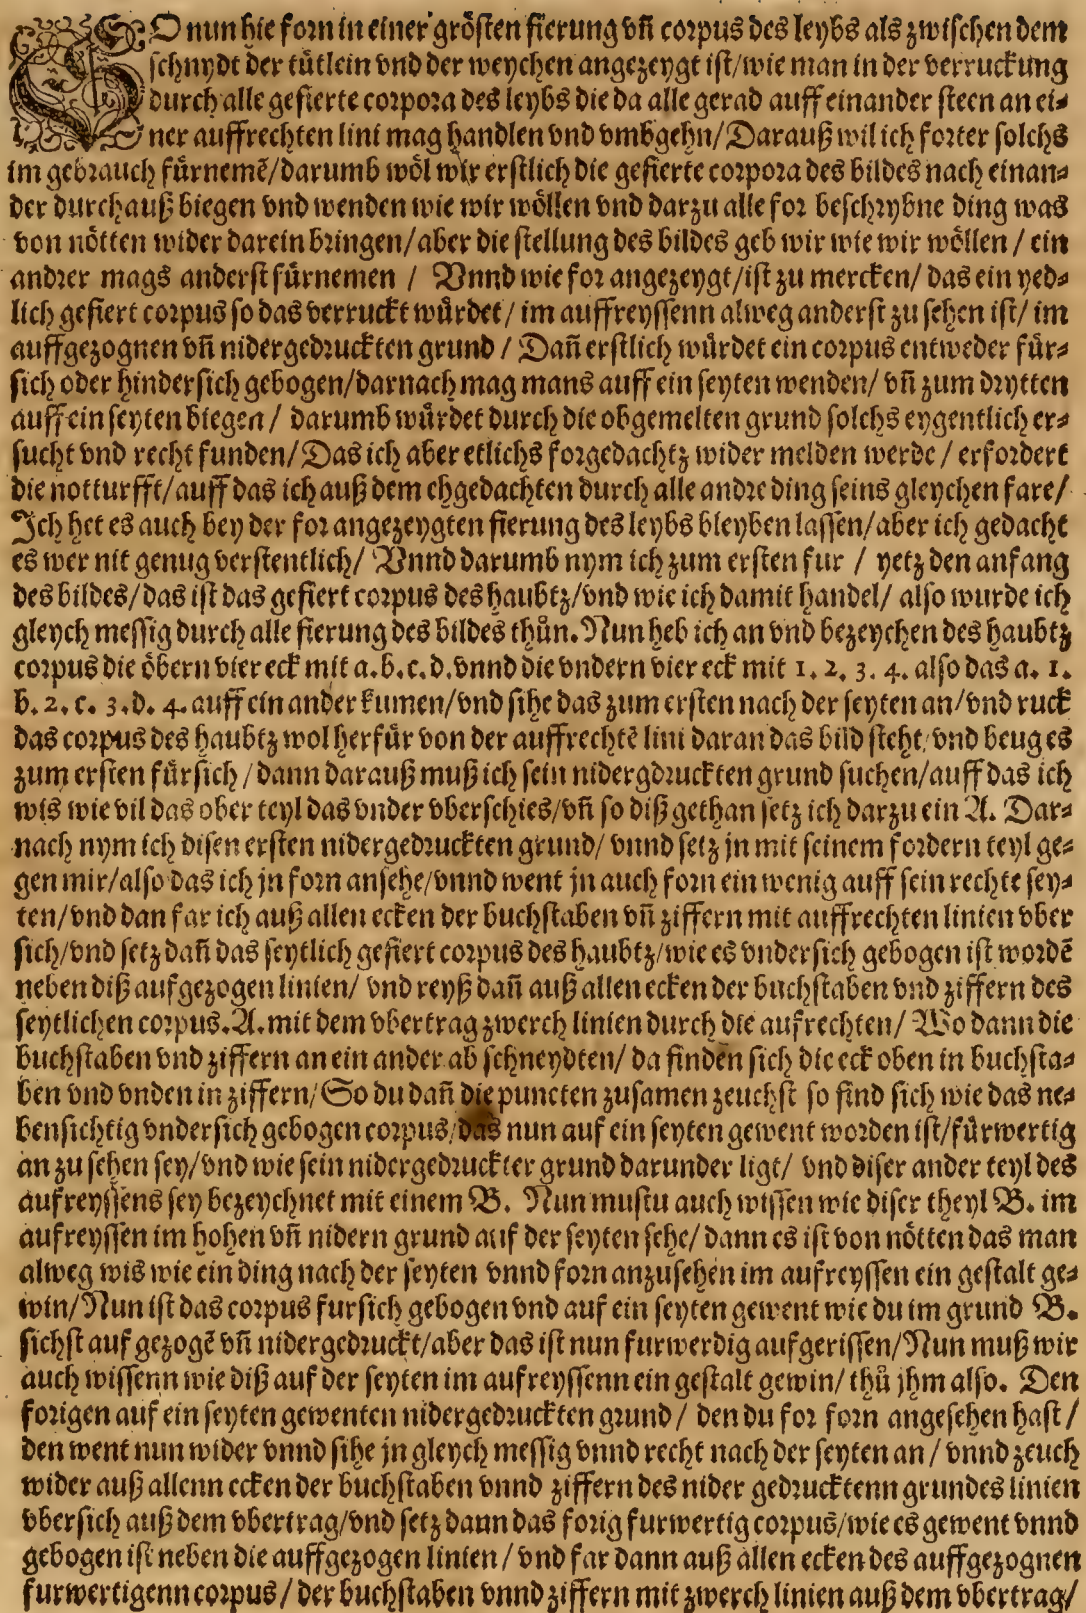 SO nun hie forn in einer grösten fierung vñ corpus des leybs als zwischen dem
schnydt der tütlein vnd der weychen angezeygt ist/wie man in der verruckung
durch alle gefierte corpora des leybs die da alle gerad auff einander steen an ei⸗
ner auffrechten lini mag handlen vnd vmbgehn/Darauß wil ich forter solchs
im gebrauch fürnemē/darumb wöl wir erstlich die gefierte corpora des bildes nach einan⸗
der durchauß biegen vnd wenden wie wir wöllen vnd darzu alle for beschrybne ding was
von nötten wider darein bringen/aber die stellung des bildes geb wir wie wir wöllen / ein
andrer mags anderst fürnemen / Vnnd wie for angezeygt/ist zu mercken/ das ein yed⸗
lich gefiert corpus so das verruckt würdet/ im auffreyssenn alweg anderst zu sehen ist/ im
auffgezognen vñ nidergedruckten grund / Dañ erstlich würdet ein corpus entweder für⸗
sich oder hindersich gebogen/darnach mag mans auff ein seyten wenden/ vñ zum drytten
auff ein seyten biegen / darumb würdet durch die obgemelten grund solchs eygentlich er⸗
sucht vnd recht funden/Das ich aber etlichs forgedachtz wider melden werde / erfordert
die notturfft/auff das ich auß dem ehgedachten durch alle andre ding seins gleychen fare/
Ich het es auch bey der for angezeygten fierung des leybs bleyben lassen/aber ich gedacht
es wer nit genug verstentlich/ Vnnd darumb nym ich zum ersten fur / yetz den anfang
des bildes/das ist das gefiert corpus des haubtz/vnd wie ich damit handel/ also wurde ich
gleych messig durch alle fierung des bildes thůn. Nun heb ich an vnd bezeychen des haubtz
corpus die öbern vier eck mit a. b. c. d. vnnd die vndern vier eck mit 1. 2. 3. 4. also das a. 1.
b. 2. c. 3. d. 4. auff ein ander kumen/vnd sihe das zum ersten nach der seyten an/vnd ruck
das corpus des haubtz wol herfür von der auffrechtē lini daran das bild steht/vnd beug es
zum ersten fürsich / dann darauß muß ich sein nidergdruckten grund suchen/auff das ich
wis wie vil das ober teyl das vnder vberschies/vñ so diß gethan setz ich darzu ein A. Dar⸗
nach nym ich disen ersten nidergedruckten grund/ vnnd setz jn mit seinem fordern teyl ge⸗
gen mir/also das ich jn forn ansehe/vnnd went jn auch forn ein wenig auff sein rechte sey⸗
ten/vnd dan far ich auß allen ecken der buchstaben vñ ziffern mit auffrechten linien vber
sich/vnd setz dañ das seytlich gefiert corpus des haubtz/wie es vndersich gebogen ist wordē
neben diß aufgezogen linien/ vnd reyß dañ auß allen ecken der buchstaben vnd ziffern des
seytlichen corpus. A. mit dem vbertrag zwerch linien durch die aufrechten/ Wo dann die
buchstaben vnd ziffern an ein ander ab schneydten/ da finden sich die eck oben in buchsta⸗
ben vnd vnden in ziffern/ So du dañ die puncten zusamen zeuchst so find sich wie das ne⸗
bensichtig vndersich gebogen corpus/das nun auf ein seyten gewent worden ist/fürwertig
an zu sehen sey/vnd wie sein nidergedruckter grund darunder ligt/ vnd diser ander teyl des
aufreyssens sey bezeychnet mit einem B. Nun mustu auch wissen wie diser theyl B. im
aufreyssen im hohen vñ nidern grund auf der seyten sehe/ dann es ist von nötten das man
alweg wis wie ein ding nach der seyten vnnd forn anzusehen im aufreyssen ein gestalt ge⸗
win/Nun ist das corpus fursich gebogen vnd auf ein seyten gewent wie du im grund B.
sichst auf gezogē vñ nidergedruckt/aber das ist nun furwerdig aufgerissen/Nun muß wir
auch wissenn wie diß auf der seyten im aufreyssenn ein gestalt gewin/ thů jhm also. Den
forigen auf ein seyten gewenten nidergedruckten grund / den du for forn angesehen hast /
den went nun wider vnnd sihe jn gleych messig vnnd recht nach der seyten an / vnnd zeuch
wider auß allenn ecken der buchstaben vnnd ziffern des nider gedrucktenn grundes linien
vbersich auß dem vbertrag/vnd setz dann das forig furwertig corpus/wie es gewent vnnd
gebogen ist neben die auffgezogen linien / vnd far dann auß allen ecken des auffgezognen
furwertigenn corpus / der buchstaben vnnd ziffern mit zwerch linien auß dem vbertrag/